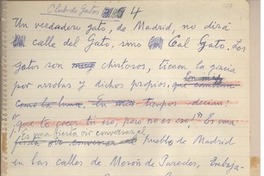 Club de Gatos 4
Un verdadero gato, de Madrid, no dirá
calle del Gato, sino Cal Gato. Los
gatos son muy chistosos, tienen la gracia
por arrobas y dichos propios,
como la tiempos decían:
que te coces tú no, pero no es eso!" Es una
fiesta oír conversar el
pueblo de Madrid
en las calles de Morón de Paredes, Embaja-